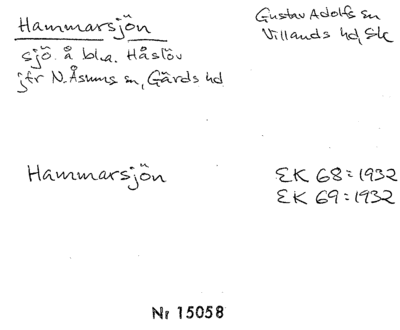 Hammarsjön
Gustav Adolfs sn
Villands hd, Sk
sjö å bl.a. Håslöv
jfr N. Åsums sn, Gärds hd
Hammarsjön
EK 68 = 1932
EK 69 = 1932
Nr 15058